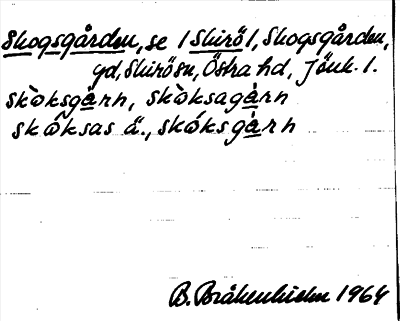 Skogsgården, se 1 Skirö 1, Skogsgården,
gd, Skirö sn, Östra hd, Jönk. l.
skòksgårn, skòksagårn
skóksas ä., skóksgårn
B. Bråkenhielm 1964